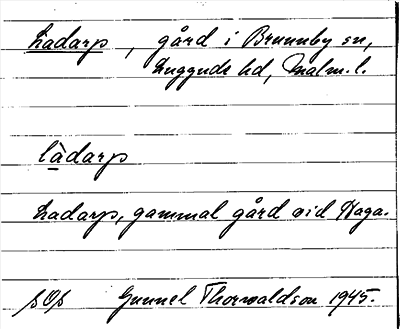 Ladarp, gård i Brunnby sn,
Luggude hd, Malm. l.
làdarp
Ladarp, gammal gård vid Haga.
Gunnel Thorwaldson 1945.